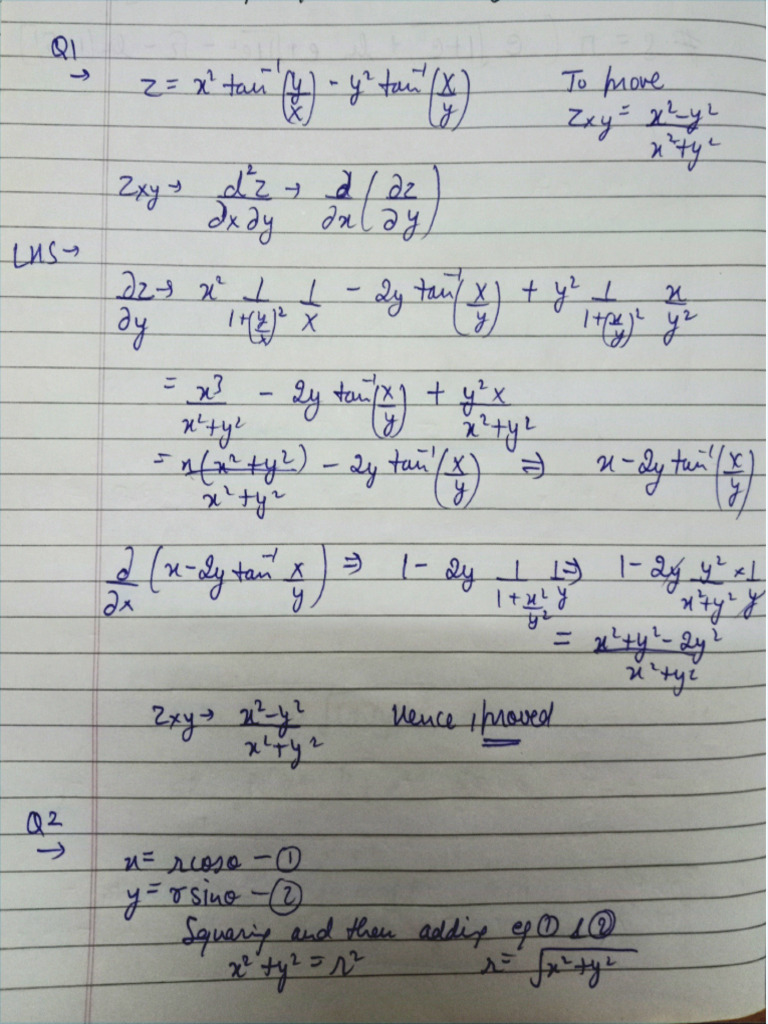 Q1
→ z = x² tan⁻¹(y/x) - y² tan⁻¹(x/y) To prove
zxy = (x²-y²)/(x²+y²)
zxy → d²z/∂x∂y → ∂/∂x (∂z/∂y)
LHS →
∂z/∂y → x² 1/(1+(y/x)²) 1/x - 2y tan⁻¹(x/y) + y² 1/(1+(x/y)²) x/y²
= x³/(x²+y²) - 2y tan⁻¹(x/y) + y²x/(x²+y²)
= x(x²+y²)/(x²+y²) - 2y tan⁻¹(x/y) ⇒ x - 2y tan⁻¹(x/y)
∂/∂x (x - 2y tan⁻¹ x/y) ⇒ 1 - 2y 1/(1+x²/y²) 1/y ⇒ 1 - 2y y²/(x²+y²) × 1/y
= (x²+y²-2y²)/(x²+y²)
zxy → (x²-y²)/(x²+y²) Hence, proved
Q2
→
x = rcosθ - ①
y = rsinθ - ②
Squaring and then adding eq ① & ②
x²+y² = r² r = √(x²+y²)